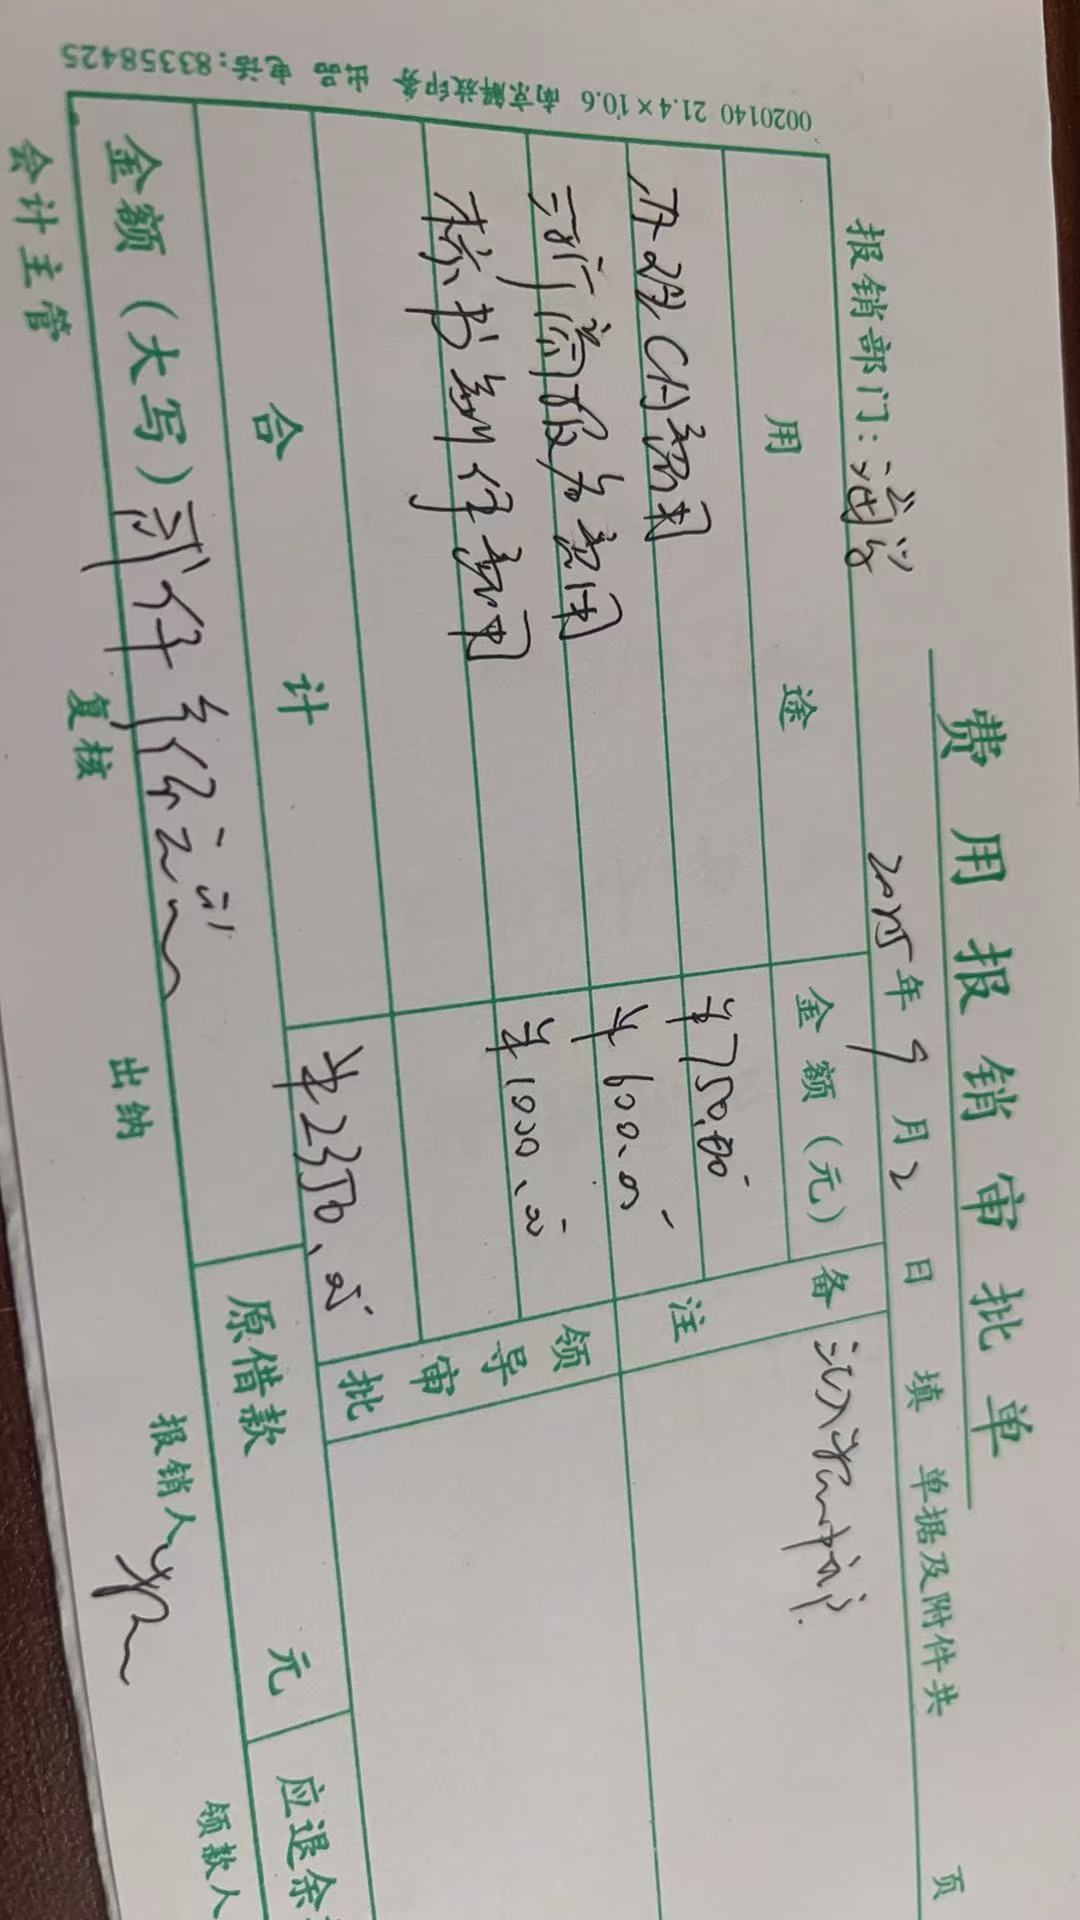 费用报销审批单
报销部门： 2025年9月2日填 单据及附件共 页
用途 金额(元) 备注
办理CA费用 ¥750.00
费用 ¥600.00
标书制作费用 ¥1000.00
领导审批
合计 ¥2350.00
金额(大写)贰仟叁佰 原借款 元 应退余
会计主管 复核 出纳 报销人 领款人
0020140 21.4×10.6 南京解放印务 出品 电话:83358425